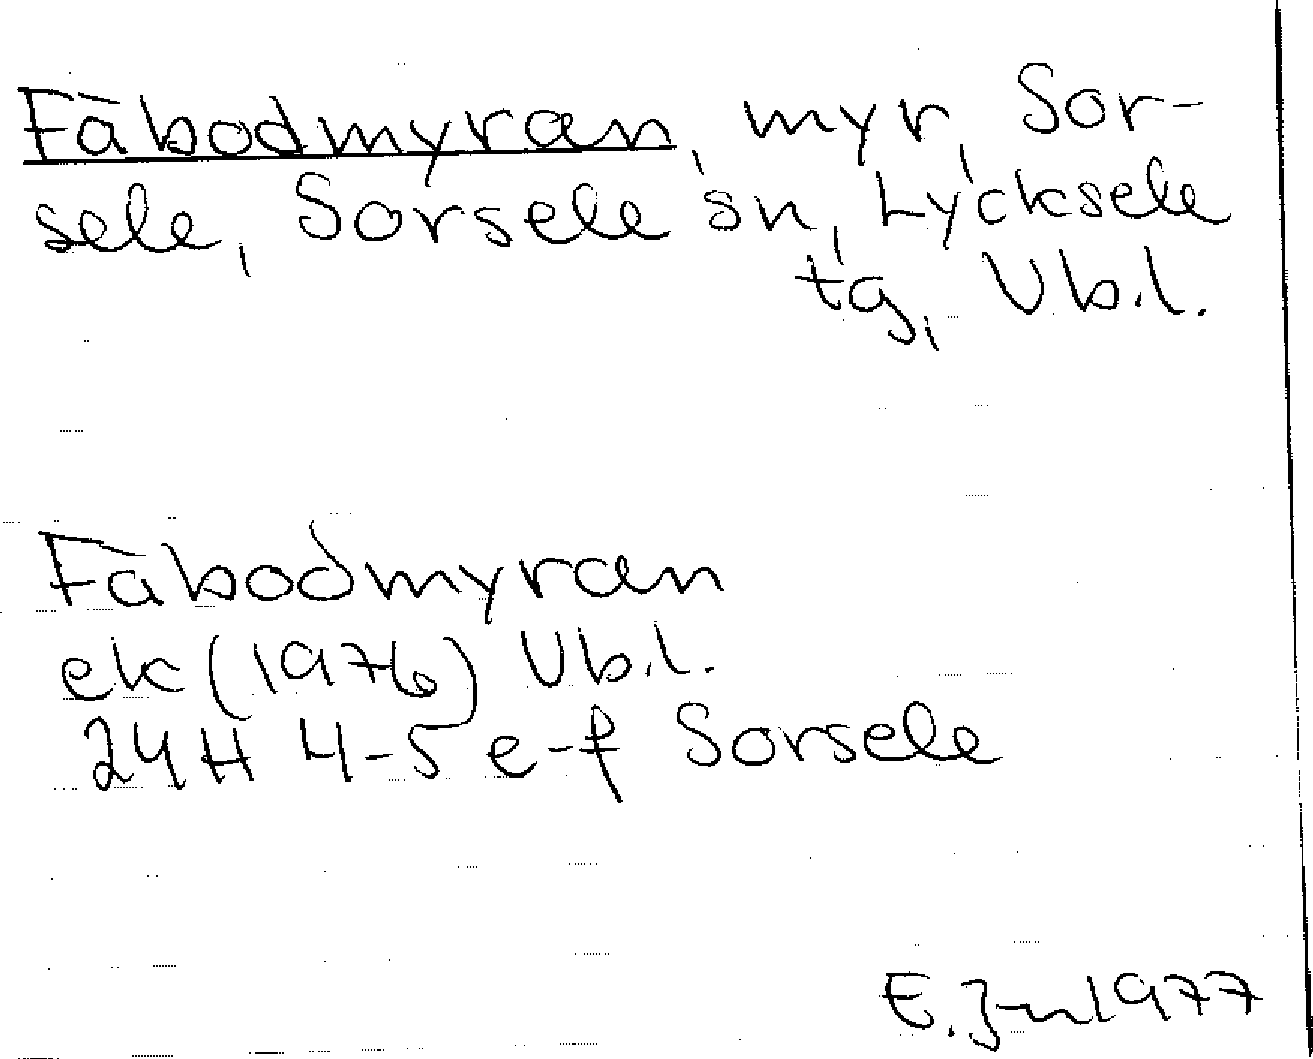 Fäbodmyran, myr, Sor-
sele, Sorsele sn, Lycksele
tg, Vb.l.
Fäbodmyran
ek (1976) Vb.l.
24H 4-5 e-f Sorsele
E. 1977